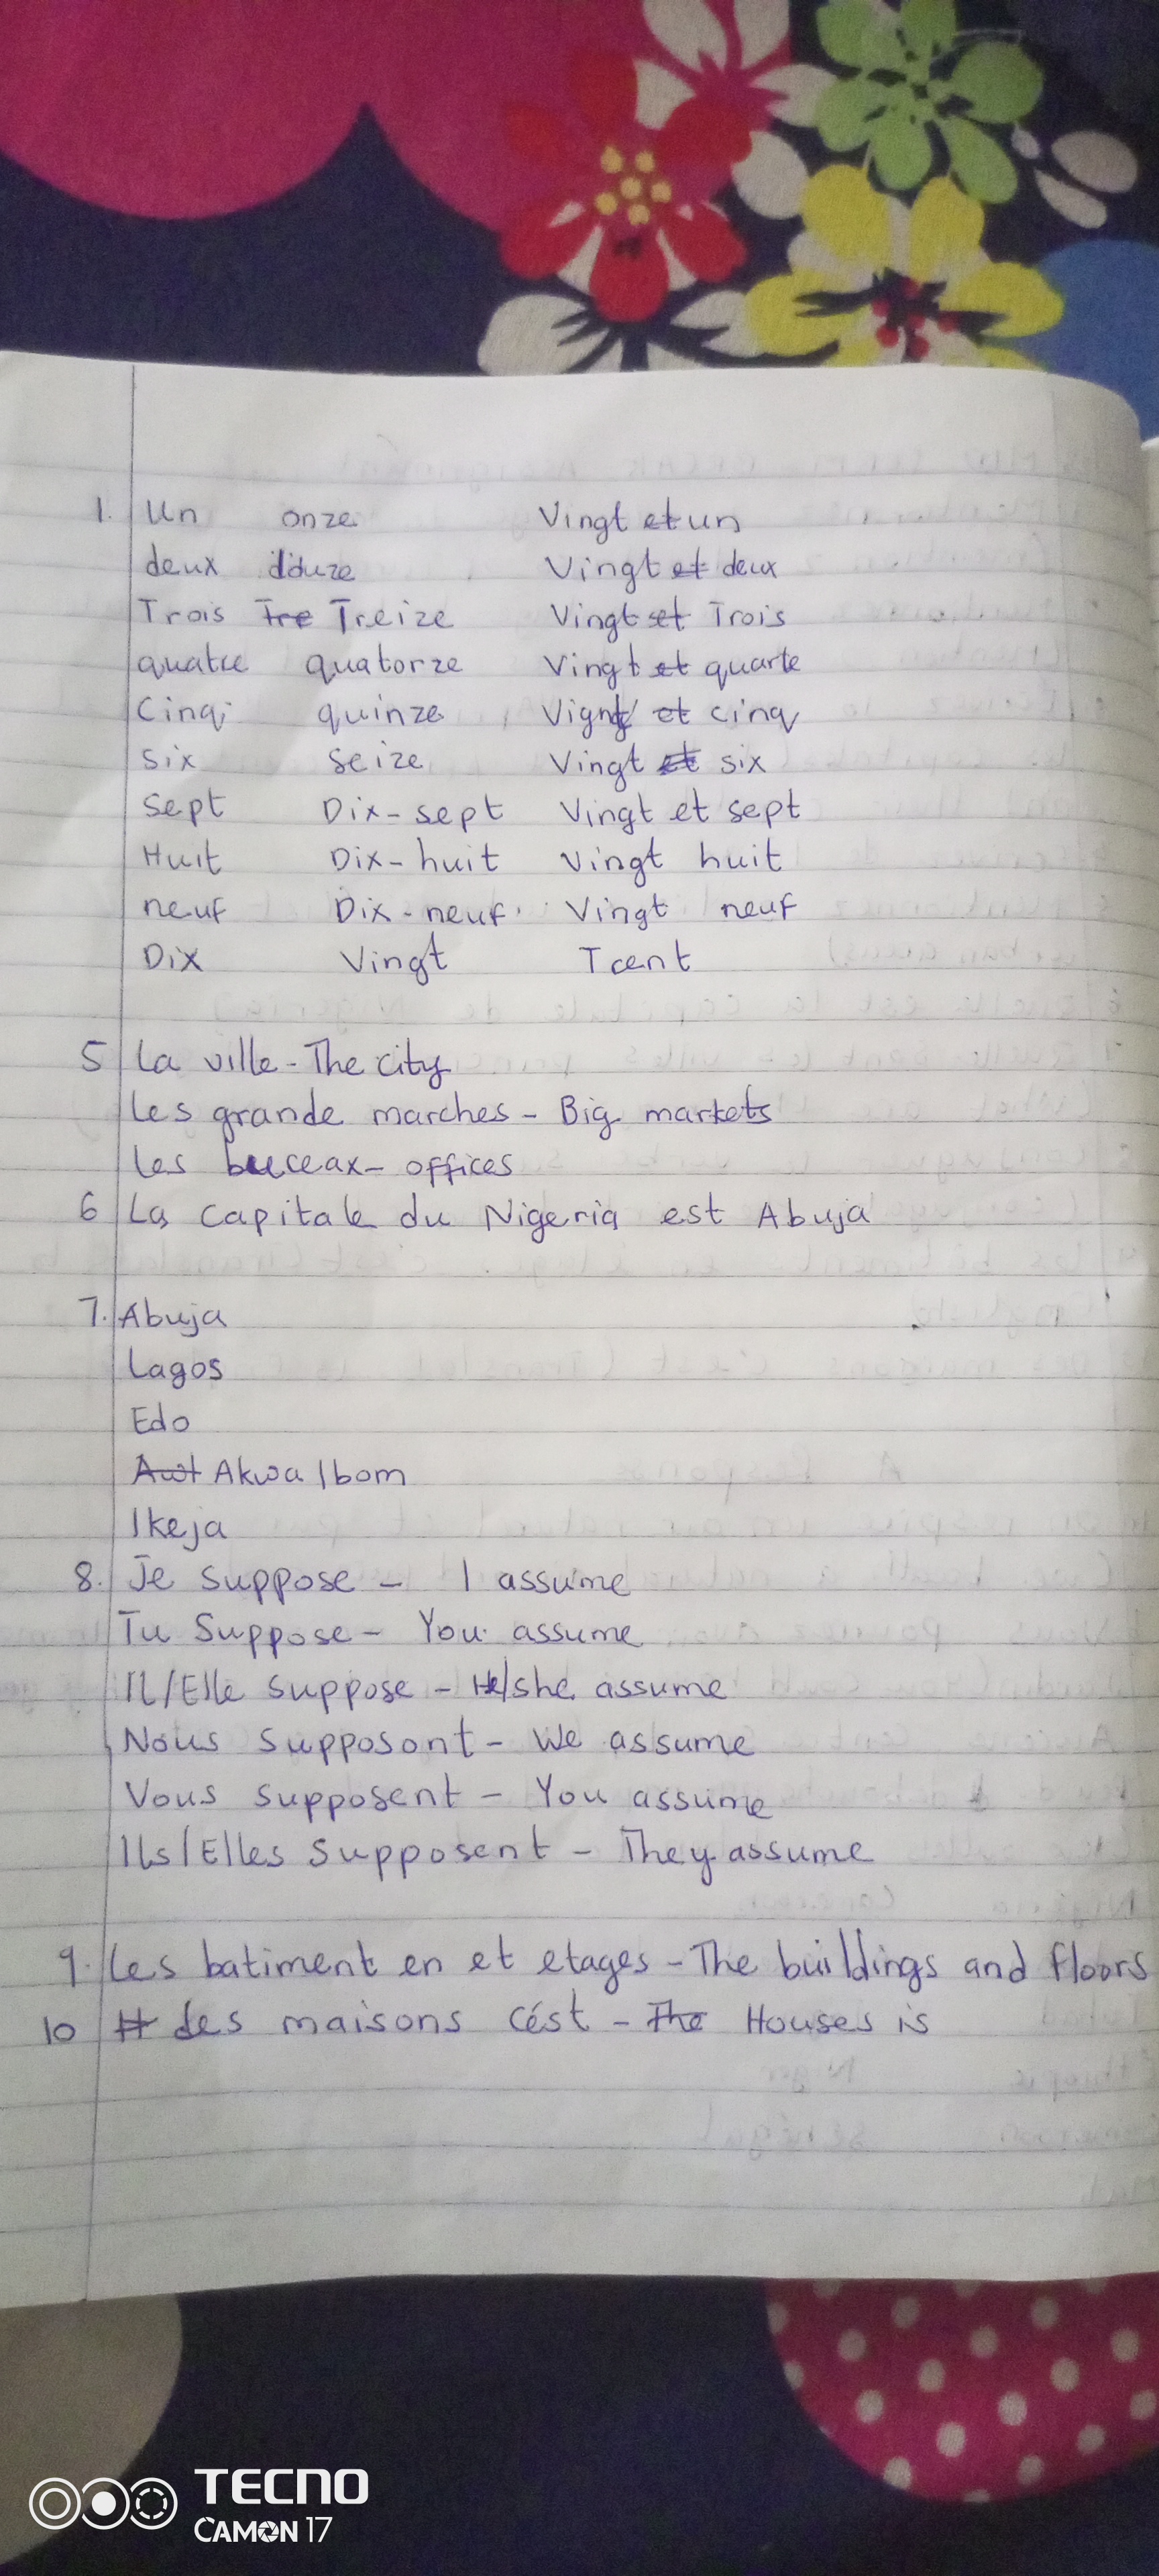 1. Un onze Vingt et un
deux douze Vingt et deux
Trois Tre Treize Vingt et Trois
quatre quatorze Vingt et quarte
Cinq quinze Vignt et cinq
six seize Vingt et six
Sept Dix-sept Vingt et sept
Huit Dix-huit Vingt huit
neuf Dix-neuf Vingt neuf
Dix Vingt Tcent
5 La ville - The city
Les grande marches - Big markets
Les buceax - offices
6 La capitale du Nigeria est Abuja
7. Abuja
Lagos
Edo
Awt Akwa Ibom
Ikeja
8. Je suppose - I assume
Tu Suppose - You assume
Il/Elle suppose - He/she assume
Nous supposont - We assume
Vous supposent - You assume
Ils/Elles supposent - They assume
9. Les batiment en et etages - The buildings and floors
10 des maisons cést - The Houses is
TECNO
CAMON 17